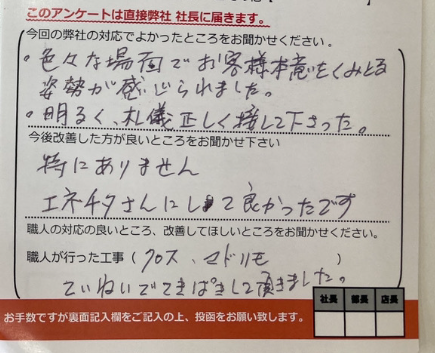 このアンケートは直接弊社 社長に届きます。
今回の弊社の対応でよかったところをお聞かせください。
・色々な場面でお客様本意をくみとる
姿勢が感じられました。
・明るく、礼儀正しく接して下さった。
今後改善した方が良いところをお聞かせ下さい
特にありません
エネチタさんにして良かったです
職人の対応の良いところ、改善してほしいところをお聞かせください。
職人が行った工事(クロス、マドリモ)
ていねいでてきぱきして頂きました。
社長 部長 店長
お手数ですが裏面記入欄をご記入の上、投函をお願い致します。